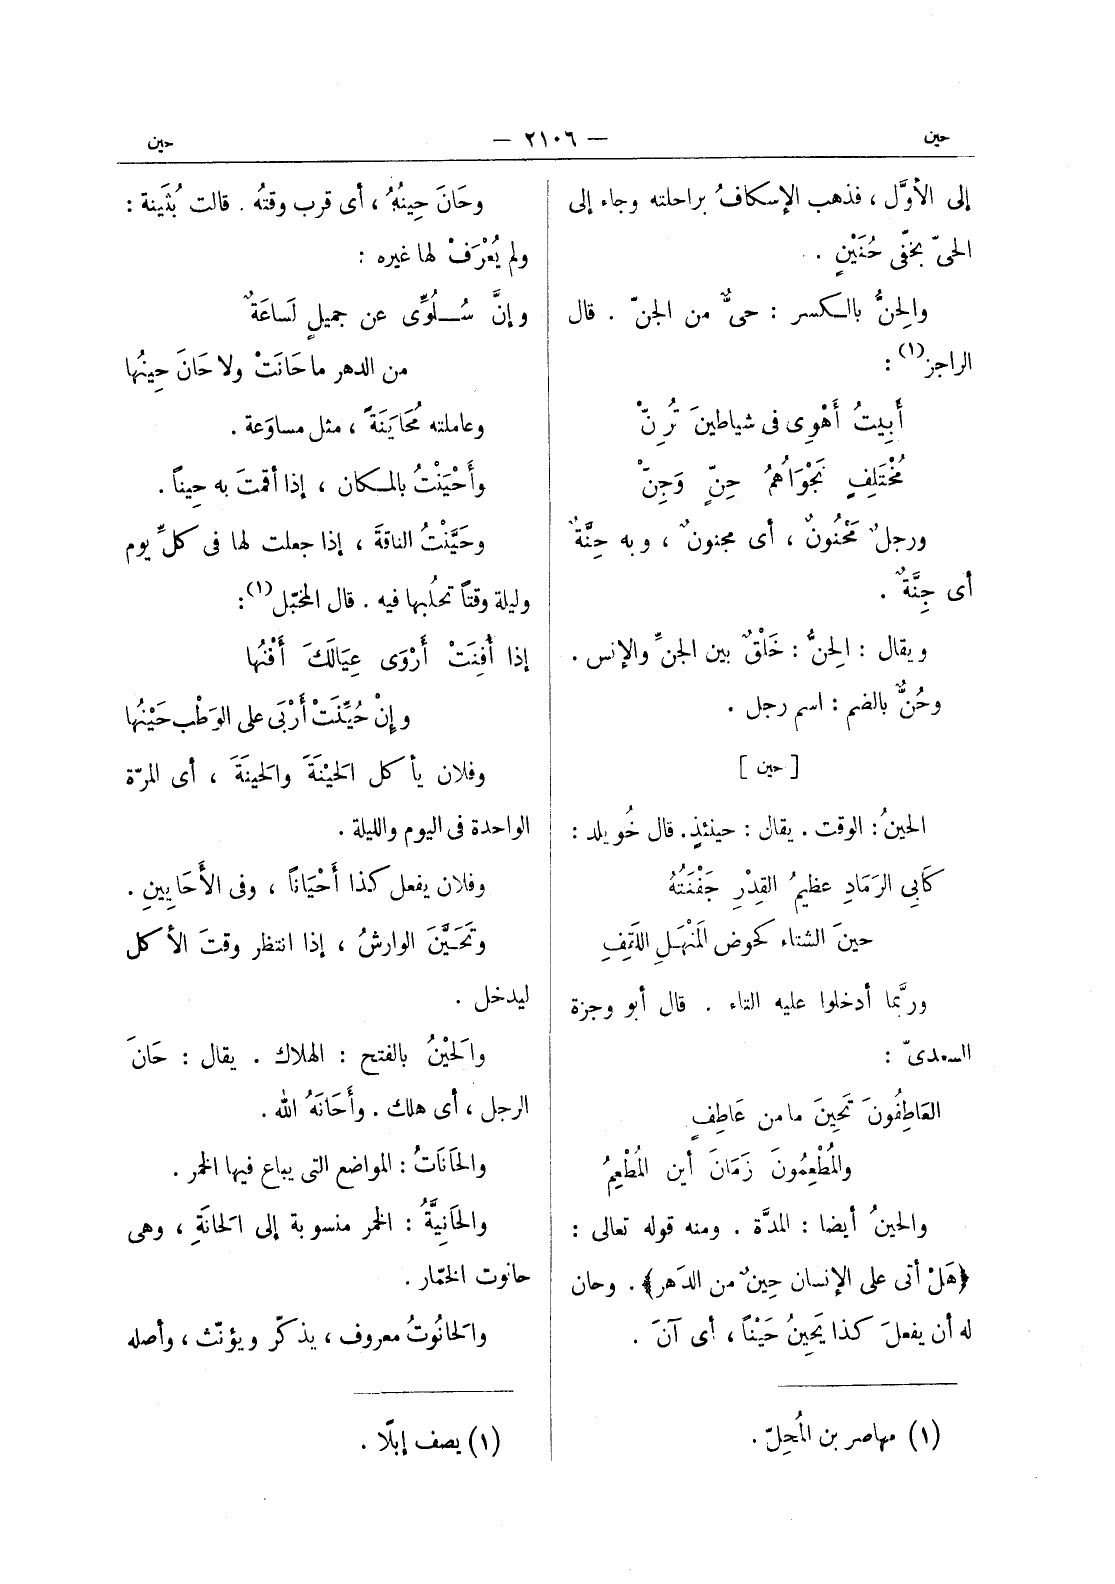 حين
— ٢١٠٦ —
حين
إلى الأوَّل ، فذهب الإسكافُ براحلته وجاء إلى
الحىّ بخفّى حُنَيْنٍ .
والحِنُّ بالكسر : حىٌّ من الجنّ . قال
الراجز(١) :
أَبِيتُ أَهْوِى فى شياطينَ تُرِنّْ
مُخْتَلِفٍ نَجْوَاهُمُ حِنٍّ وَجِنّْ
ورجلٌ مَحْنُونٌ ، أى مجنونٌ ، وبه حِنَّةٌ
أى جِنَّةٌ .
ويقال : الحِنُّ : خَلْقٌ بين الجنِّ والإنس .
وحُنٌّ بالضم : اسم رجل .
[ حين ]
الحينُ : الوقت . يقال : حينئذٍ . قال خُويلد :
كَابِي الرَمَادِ عظيمُ القِدْرِ جَفْنَتُهُ
حينَ الشتاء كحوض المَنْهَلِ اللَقِفِ
وربَّما أدخلوا عليه التاء . قال أبو وجزة
السعدىّ :
العَاطِفُونَ تَحِينَ ما من عَاطِفٍ
والمُطْعِمُونَ زَمَانَ أين المُطْعِمُ
والحينُ أيضا : المدَّة . ومنه قوله تعالى :
﴿هَلْ أتى على الإنسان حِينٌ من الدَهر﴾ . وحان
له أن يفعلَ كذا يَحِينُ حَيْناً ، أى آنَ .
(١) مهاصر بن المُحِلّ .
وحَانَ حِينُهُ ، أى قرب وقتُه . قالت بُثَينة :
ولم يُعْرَفْ لها غيره :
وإنَّ سُلُوِّى عن جميلٍ لَسَاعَةٌ
من الدهر ما حَانَتْ ولا حَانَ حِينُها
وعاملته مُحَايَنَةً ، مثل مساوَعة .
وأَحْيَنْتُ بالمكان ، إذا أقمتَ به حِيناً .
وحَيَّنْتُ الناقةَ ، إذا جعلت لها فى كلِّ يوم
وليلة وقتاً تحلُبها فيه . قال المخبّل(١) :
إذا أُفِنَتْ أَرْوَى عِيَالَكَ أَفْنُها
وإنْ حُيِّنَتْ أَرْبَى على الوَطْب حَيْنُها
وفلان يأكل الحَيْنَةَ والحِينَةَ ، أى المرّة
الواحدة فى اليوم والليلة .
وفلان يفعل كذا أَحْيَاناً ، وفى الأَحَايِينِ .
وتَحَيَّنَ الوارشُ ، إذا انتظر وقتَ الأكل
ليدخل .
والحَيْنُ بالفتح : الهلاك . يقال : حَانَ
الرجل ، أى هلك . وأَحَانَهُ الله .
والحَانَاتُ : المواضع التى يباع فيها الخمر .
والحَانِيَّةُ : الخمر منسوبة إلى الحَانَةِ ، وهى
حانوت الخمّار .
والحَانُوتُ معروف ، يذكّر ويؤنّث ، وأصله
(١) يصف إبلًا .